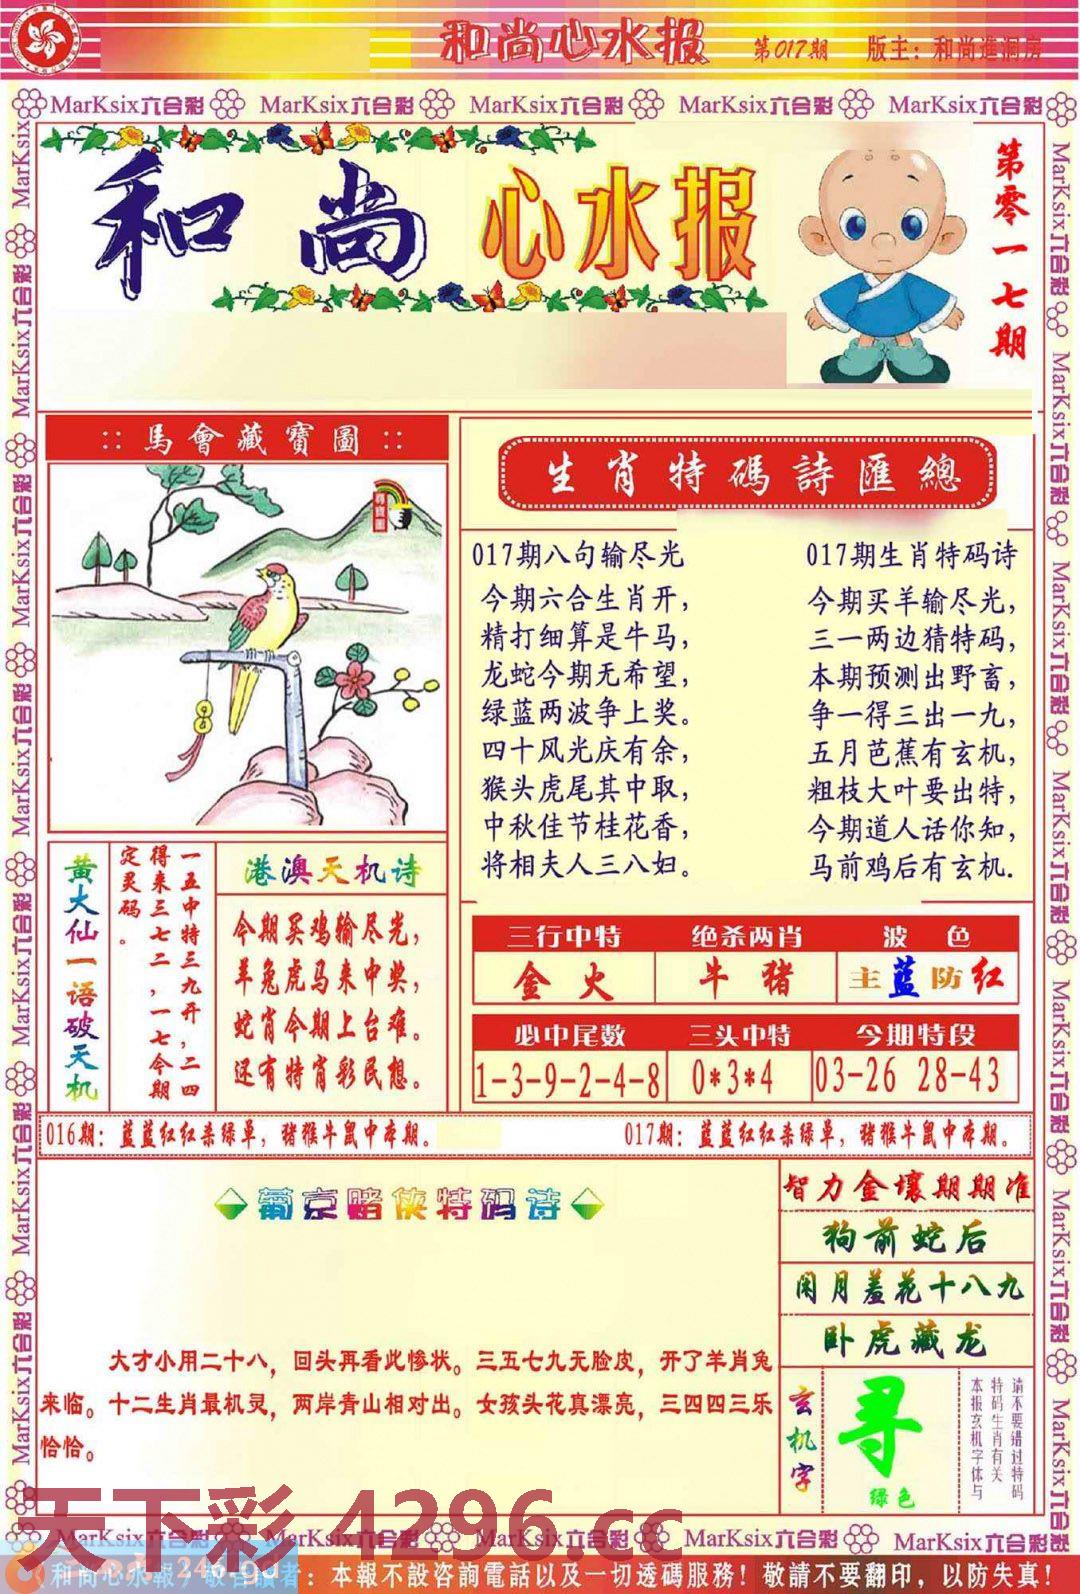 和尚心水报 第017期 版主：和尚進洞房
MarKsix六合彩 MarKsix六合彩 MarKsix六合彩 MarKsix六合彩 MarKsix六合彩
和尚 心水报
第零一七期
::馬會藏寶圖::
尋寶圖
生肖特碼詩匯總
017期八句输尽光
今期六合生肖开，
精打细算是牛马，
龙蛇今期无希望，
绿蓝两波争上奖。
四十风光庆有余，
猴头虎尾其中取，
中秋佳节桂花香，
将相夫人三八妇。
017期生肖特码诗
今期买羊输尽光，
三一两边猜特码，
本期预测出野畜，
争一得三出一九，
五月芭蕉有玄机，
粗枝大叶要出特，
今期道人话你知，
马前鸡后有玄机.
黄大仙一语破天机
一五中特三九开，二四
得来三七二，一七今期
定灵码。
港澳天机诗
今期买鸡输尽光，
羊兔虎马来中奖，
蛇肖今期上台难。
还有特肖彩民想。
三行中特 绝杀两肖 波色
金火 牛猪 主蓝防红
必中尾数 三头中特 今期特段
1-3-9-2-4-8 0*3*4 03-26 28-43
016期：蓝蓝红红杀绿单，猪猴牛鼠中本期。 017期：蓝蓝红红杀绿单，猪猴牛鼠中本期。
葡京赌侠特码诗
大才小用二十八，回头再看此惨状。三五七九无脸皮，开了羊肖兔
来临。十二生肖最机灵，两岸青山相对出。女孩头花真漂亮，三四四三乐
恰恰。
智力金壤期期准
狗前蛇后
闲月羞花十八九
卧虎藏龙
玄机字
寻
绿色
请不要错过特码
特码生肖有关
本报玄机字体与
天下彩 4296.cc
MarKsix六合彩 MarKsix六合彩 MarKsix六合彩 MarKsix六合彩 MarKsix六合彩
246.gd
和尚心水報，敬告讀者：本報不設咨詢電話以及一切透碼服務！敬請不要翻印，以防失真！